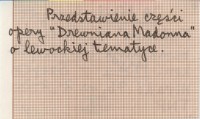 Przedstawienie części
opery "Drewniana Madonna"
o lewockiej tematyce.